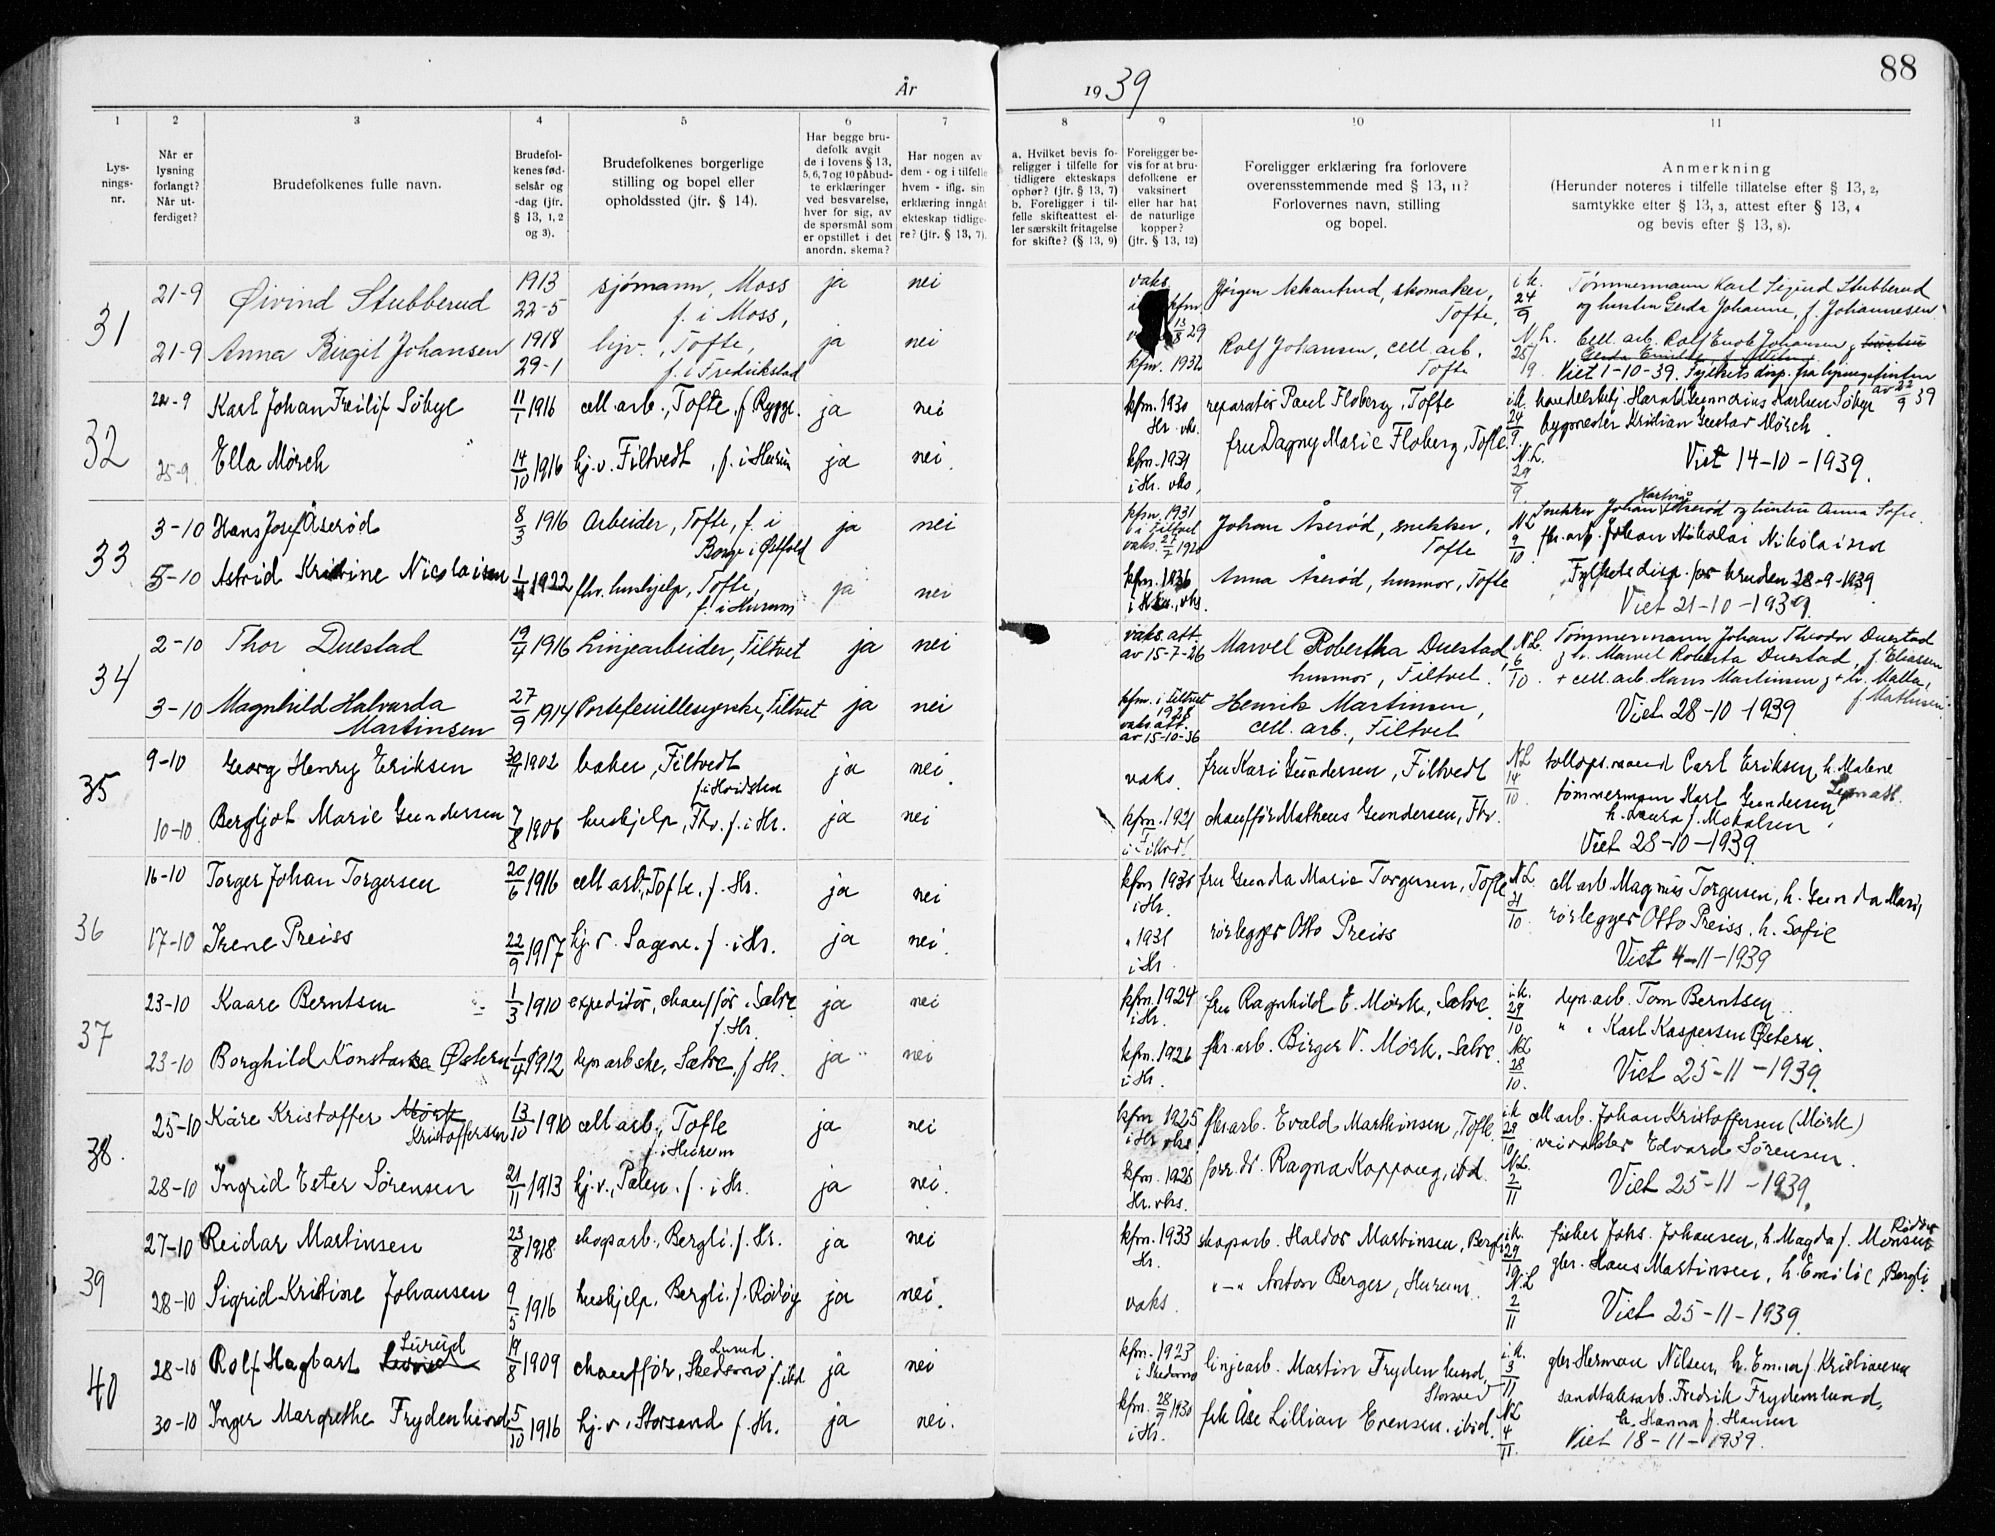 88
År
1939
1
2
3
4
5
6
7
8
9
10
11
Lys-
nings-
nr.
Når er
lysning
forlangt?
Når ut-
ferdiget?
Brudefolkenes fulle navn.
Brudefol-
kenes fød-
selsår og
-dag (jfr.
§ 13, 1, 2
og 3).
Brudefolkenes borgerlige
stilling og bopel eller
opholdssted (jfr. § 14).
Har begge bru-
defolk avgit
de i lovens § 13,
5, 6, 7 og 10 påbud-
te erklæringer
ved besvarelse,
hver for sig, av
de spørsmål som
er opstillet i det
anordn. skema?
Har nogen av
dem - og i tilfelle
hvem - iflg. sin
erklæring inngåt
ekteskap tidlige-
re? (jfr. § 13, 7).
a. Hvilket bevis fo-
religger i tilfelle for
tidligere ekteskaps
ophør? (jfr. § 13, 7)
b. Foreligger i til-
felle skifteattest el-
ler særskilt fritagelse
for skifte? (§ 13, 9)
Foreligger be-
vis for at bru-
defolkene er
vaksinert
eller har hat
de naturlige
kopper?
(jfr. § 13, 12)
Foreligger erklæring fra forlovere
overensstemmende med § 13, 11?
Forlovernes navn, stilling
og bopel.
Anmerkning
(Herunder noteres i tilfelle tillatelse efter § 13, 2,
samtykke efter § 13, 3, attest efter § 13, 4
og bevis efter § 13, 8).
31
21-9 Øivind Stubberud 1913 22-5 sjømann, Moss ja nei vaks. Jørgen skomaker, i k. Tømmermann Karl Sigurd Stubberud
f. i Moss, kfm. 13/8 29 Tofte, 24/9 og hustru Gerda Johanne, f. Johannesen
21-9 Anna Birgit Johansen 1918 29-1 hjv., Tofte, ja nei Rolf Johansen, cell. arb. N.L. Cell. arb. Rolf Johansen
f. i Fredrikstad kfm. 1932 Tofte 25/9 Viet 1-10-39. Fylkets disp. fra lysningsfristen
av 22/9 39
32
22-9 Karl Johan Søbye 11/1 1916 cell. arb., Tofte, f. Rygge. ja nei kfm. 1930 reparatør Paul Floberg, Tofte i k. handelsbetj. Harald Karlsen Søbye
Hr. vks. fru Dagny Marie Floberg, Tofte 24/9 bygmester Kristian Gustav Mørch
25-9 Ella Mörch 14/10 1916 hj.v. Filtvedt, f. i Hurum ja nei. kfm. 1931 N.L. Viet 14-10-1939.
i Hr. vks, 29/9
33
3-10 Hans Josef Åserød 8/3 1916 Arbeider, Tofte, f. i ja nei kfm. 1931 Johan Åserød, snekker, NL Snekker Johan Hartvig Åserød og hustru Anna Sofie.
Borge i Østfold i Filtvet Tofte 9/10 fbr. arb. Johan Nikolai Nikolaisen
5-10 Astrid Kristine Nicolaisen 1/4 1922 fhv. hushjelp, Tofte, ja nei kfm. 1936 Anna Åserød, husmor, Tofte Fylkets disp. for bruden 28-9-1939
f. i Hurum Viet 21-10-1939.
34
2-10 Thor Duestad 19/4 1916 Linjearbeider, Filtvet ja nei vaks. att. Marvel Robertha Duestad, N.L. Tømmermann Johan Theodor Duestad
av 15-7-26 husmor, Filtvet. 6/10 g. h. Marvel Roberta Duestad, f. Eliassen
+ cell. arb. Hans Martinsen g + h. Malla,
3-10 Magnhild Halvarda 27/9 1914 Portefeuillesyerske, Filtvet ja nei kfm. i Filtvet Henrik Martinsen, f. Mathisen
Martinsen 1928 vaks. att. cell. arb., Filtvet Viet 28-10 1939
av 15-10-36
35
9-10 Georg Henry Eriksen 1902 baker, Filtvedt ja nei. vaks. fru Kari Gundersen, Filtvedt NL tollops. mand Carl Eriksen, h. Malene
f. i Hvidsten 14/10 tømmermann Karl Gundersen,
10-10 Bergljot Marie Gundersen 7/8 1906 hushjelp, Fhv. f. i Hr. ja nei kfm. 1921 chauffør Matheus Gundersen, Fhv. h. Laura f. Mikalsen
i Filtvdt. Viet 28-10-1939
36
16-10 Torger Johan Torgersen 20/6 1916 cell arb., Tofte. f. Hr. ja nei kfm 1930 fru Gunda Marie Torgersen, Tofte NL cell arb. Magnus Torgersen, h. Gunda Marie
i Hr. 31/10 rørlegger Otto Preiss, h. Sofie
17-10 Irene Preiss 22/9 1917 hj. v. Sagene. f. i Hr. ja nei. " 1931 rørlegger Otto Preiss Viet 4-11-1939
i Hr.
37
23-10 Kaare Berntsen 1/3 1910 expeditør, chauffør, Sætre ja nei kfm. 1924 fru Ragnhild E. Mørk, Sætre i. k. dyn. arb. Tom Berntsen
f. Hr. i Hr. 29/10 " " Karl Kaspersen Østern.
23-10 Borghild Konstanse Østern 1/4 1912 dyn arbske, Sætre, f. Hr. ja nei kfm. 1926 fbr. arb. Birger V. Mörk, Sætre. NL Viet 25-11-1939.
i Hr. 28/10
38.
25-10 Kåre Kristoffer Mørk 13/10 1910 cell arb., Tofte ja nei kfm 1925 fbr arb. Evald Marthinsen, Tofte i. k. cell arb. Johan Kristoffersen (Mörk)
Kristoffersen f. i Hurum i Hr vks. 29/10 veivokter Edvard Sörensen.
28-10 Ingrid Ester Sörensen 21/11 1913 hj. v., Palen. f. i Hr. ja nei. kfm. 1928 Ragna Koppang, ibid. N.L. Viet 25-11-1939.
Hr. vks. 2/11
39
27-10 Reidar Martinsen 23/8 1918 skogsarb., Bergli. f. Hr. ja nei kfm. 1933 skogsarb. Haldor Martinsen, Bergli i k. fisker Johs. Johansen, h. Magda f. Monsen
Hr. 29/10 gbr. Hans Martinsen, h. Emilie Bergli.
28-10 Sigrid Kristine Johansen 9/5 1916 hushjelp, Bergli. f. Rödöy ja nei. vaks. "-" Anton Berger, Hurum. NL Viet 25-11-1939.
2/11
40
28-10 Rolf Hagbart Lurud 19/8 1909 chauffør, Skedsmo f. ibd ja nei kfm. 1923 linjearb. Martin Frydenlund, i. k. gbr Herman Nilsen, h. Emma f. Kristiansen
i Skedsmo Storsand 3/11 sandtaksarb. Fredrik Frydenlund,
30-10 Inger Margrethe Frydenlund 5/10 1916 hj. v. Storsand f. Hr. ja nei. kfm. 28/9 1930 frk Åse Lillian Evensen. ibid. NL h. Hanna f. Hansen
i Hr. 4/11 Viet 18-11-1939.